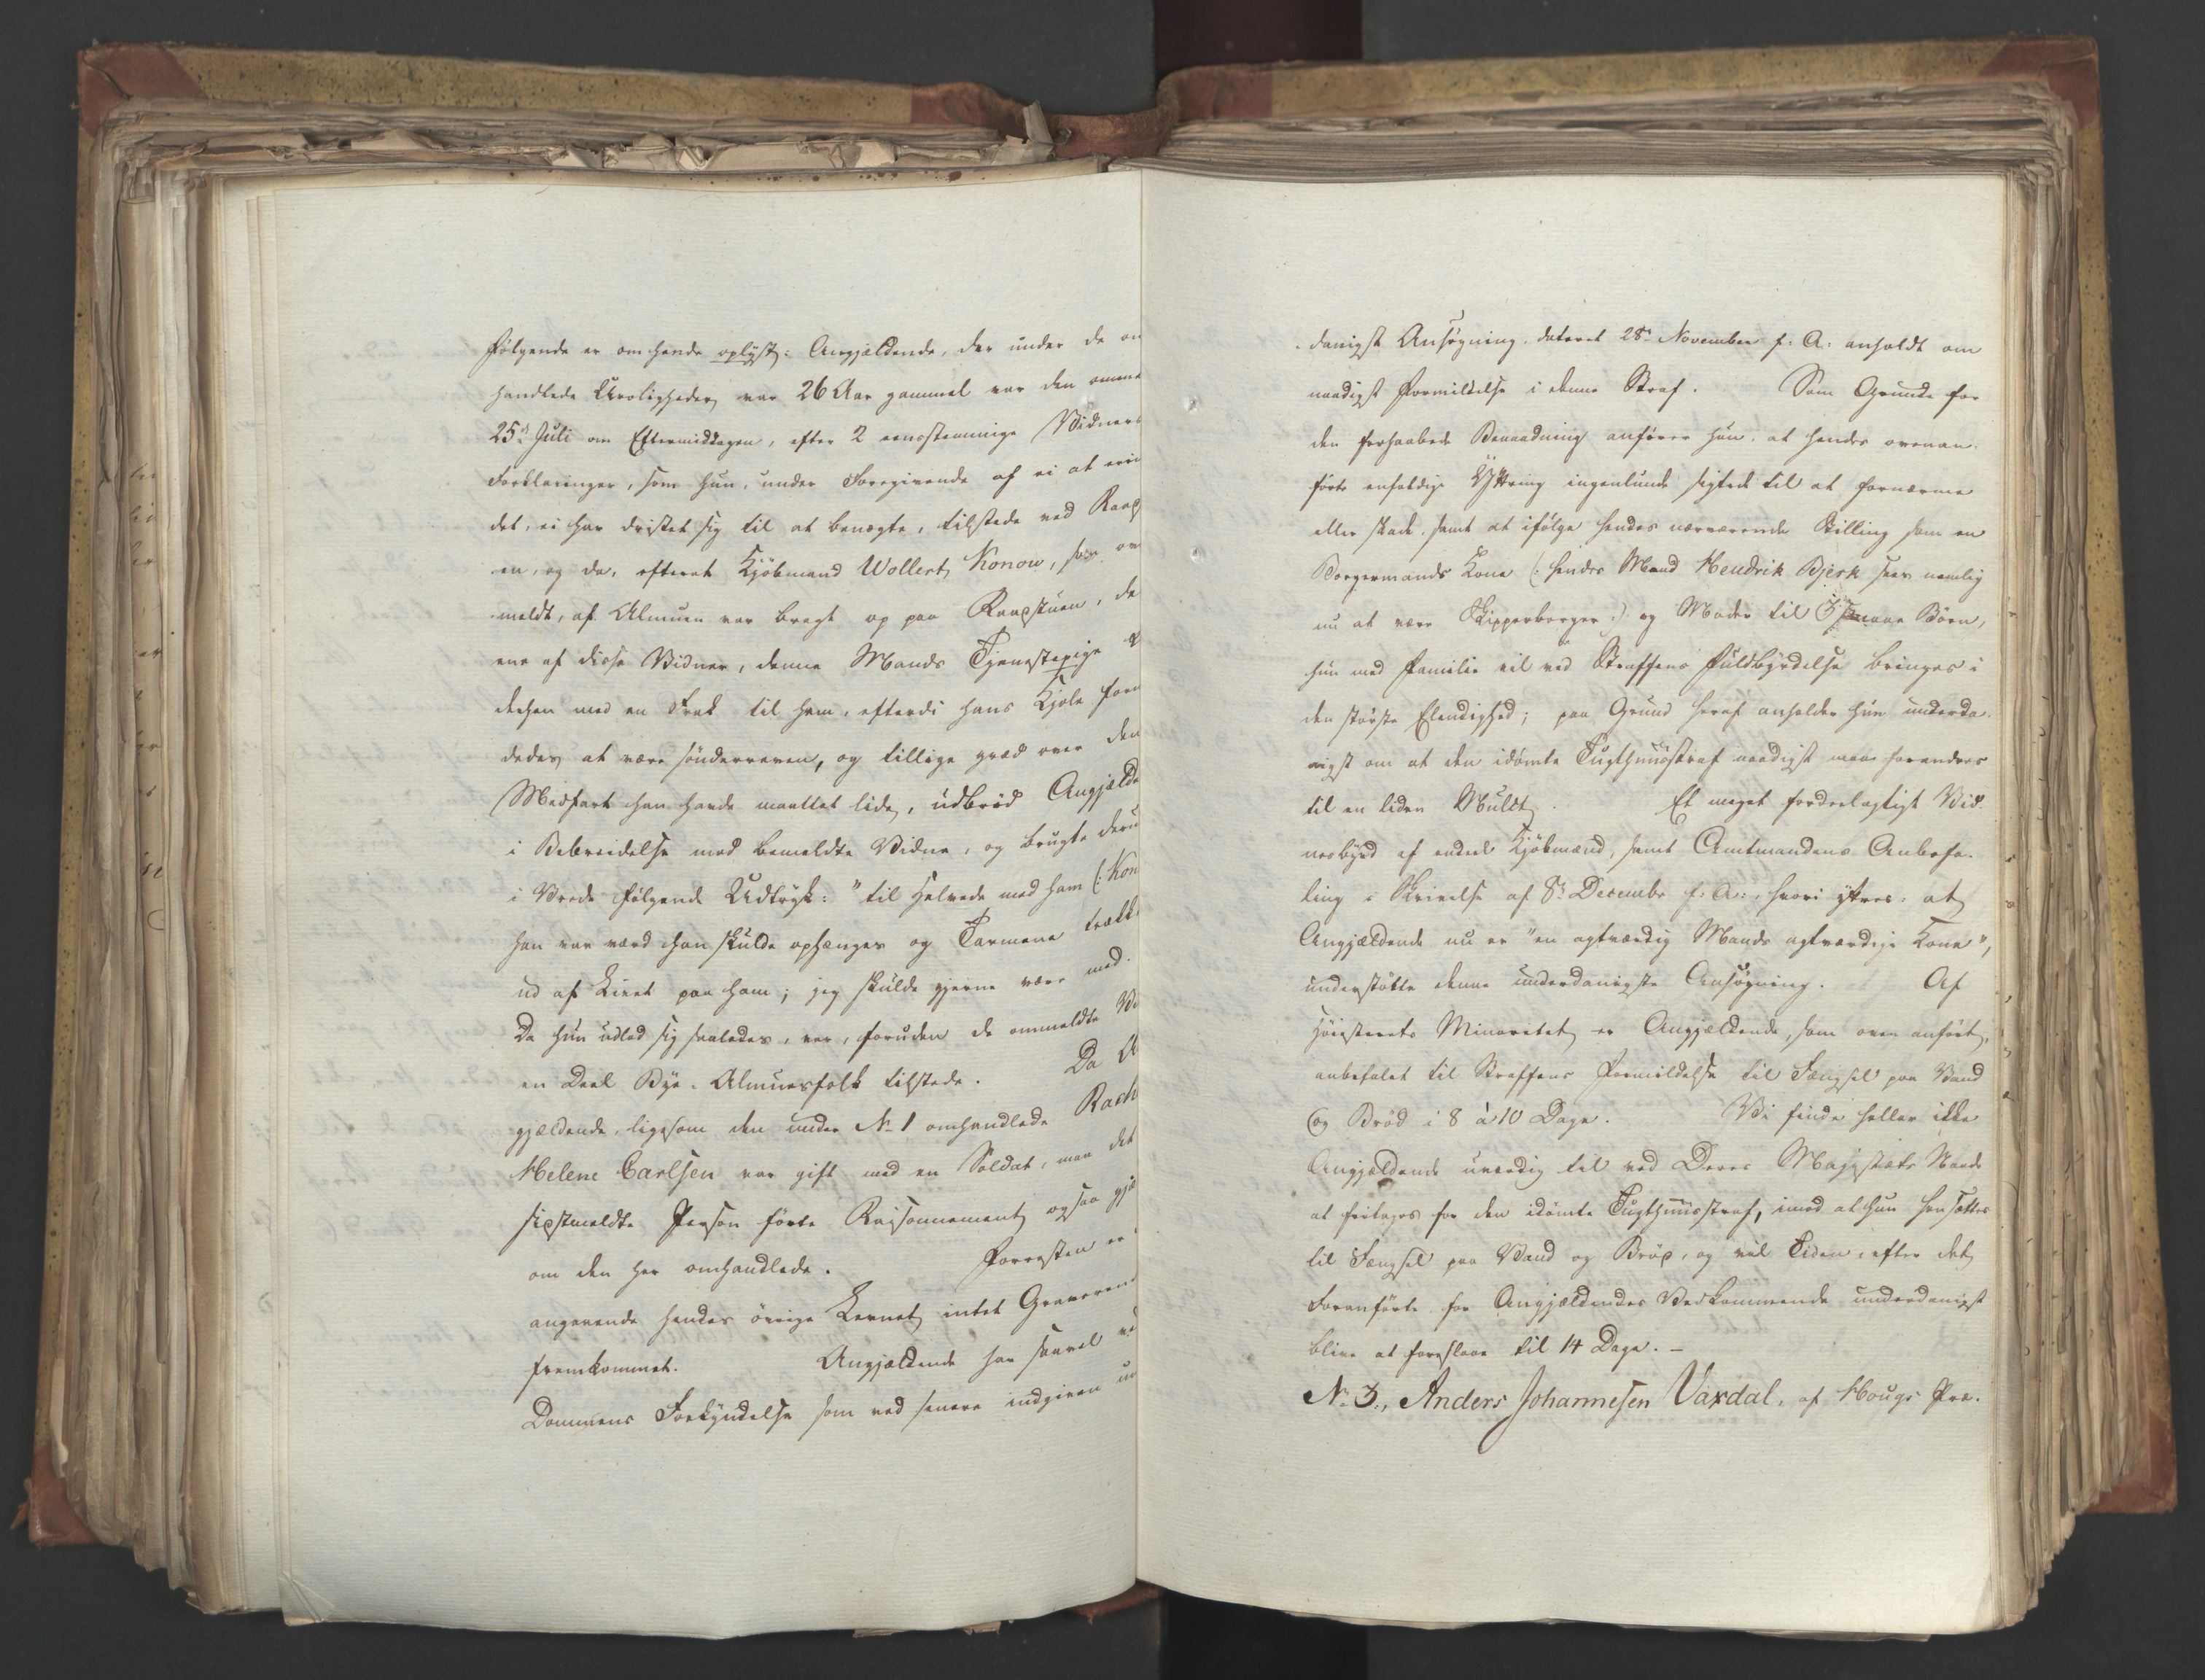 følgende er om hende oplyst: Angjældende, der under de om
handlede Uroligheder var 26 Aar gammel var den omme
25de Juli om Eftermiddagen, efter 2 eensstemmige Vidners
Forklaringer, som hun, under Foregivende af ei at erin
det, ei har dristet sig til at benegte, tilstede ved Raad
en, og da, efterat Kjöbmand Wollert Konow, som om
meldt, af Almuen var bragt op paa Raadstuen, de
ene af disse Vidner, denne Mands Tjenestepige
derhen med en Frak til ham, efterdi hans Kjole form
dedes at være sönderreven, og tillige græd over den
Medfart han havde maattet lide, udbröd Angjælde
i Bebreidelse mod bemeldte Vidne, og brugte deru
i Vrede følgende Udtryk: "til Helvede med ham (: Kon
han var værd han skulde ophænges og Tarmene trækk
ud af Livet paa ham; jeg skulde gjerne være med.
Da hun udlod sig saaledes, var, foruden de ommeldte Vi
en Deel Bye-Almuesfolk tilstede. Da A
gjældende, ligesom den under No 1 omhandlede Rach
Helene Carlsen var gift med en Soldat, maa det
sidstmeldte Person förte Raisonnement ogsaa gjæ
om den her omhandlede. Forresten er
angaaende hendes övrige Levnet intet Graveren
fremkommet. Angjældende har saavel ve
Dommens Forkyndelse som ved senere indgiven un
danigst Ansögning dateret 28de November f: A: anholdt om
naadigst Formildelse i denne Straf. Som Grunde for
den forhaabede Benaadning anförer hun, at hendes ovenan-
förte enfoldige Yttring ingenlunde sigtede til at fornærme
eller skade, samt at ifölge hendes nærværende Stilling som en
Borgermands Kone (: hendes Mand Hendrik Bjerk skal nemlig
nu at være Skipperborger :) og Moder til 3 smaae Börn,
hun med Familie vil ved Straffens Fuldbyrdelse bringes i
den störste Elendighed; paa Grund heraf anholder hun underda-
nigst om at den idömte Tugthuusstraf naadigst maa forandres
til en liden Mulct. Et meget fordeelagtigt Vid-
nesbyrd af endeel Kjöbmænd, samt Amtmandens Anbefa-
ling i Skrivelse af 8de Decembr f: A:, hvori yttres, at
Angjældende nu er "en agtværdig Mands agtværdige Kone",
understötte denne underdanigste Ansögning. Af
Höiesterets Minoritet er Angjældende, som oven anfört,
anbefalet til Straffens Formildelse til Fængsel paa Vand
og Bröd i 8 à 10 Dage. Vi finde heller ikke
Angjældende uværdig til ved Deres Majestæts Naade
at fritages for den idömte Tugthuusstraf, imod at hun hensættes
til Fængsel paa Vand og Bröd, og vil Tiden, efter det
Foranförte, for Angjældendes Vedkommende underdanigst
blive at foreslaae til 14 Dage. –
No 3., Anders Johannesen Vaxdal, af Hougs Præ-